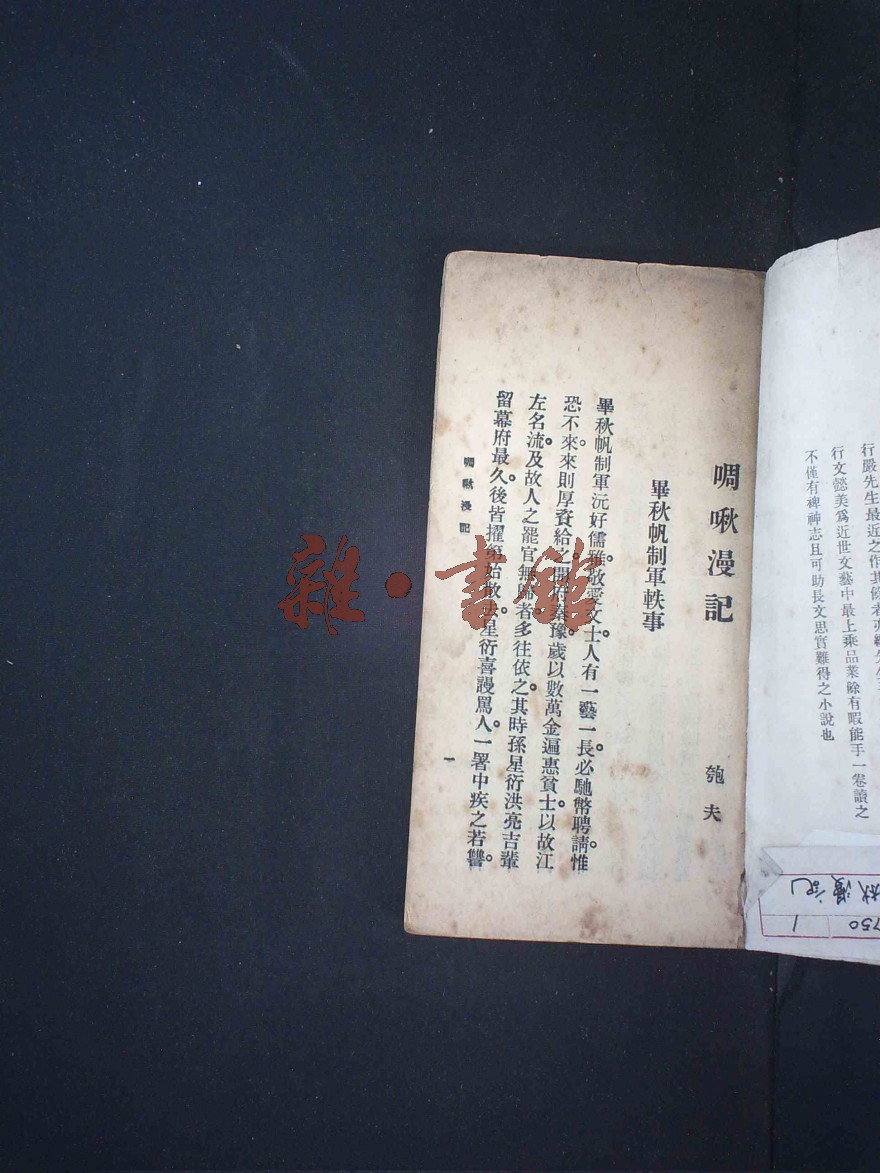 行嚴先生最近之作其
行文懿美爲近世文藝中最上乘品業餘有暇能手一卷讀之
不僅有裨神志且可助長文思實難得之小說也
啁啾漫記
匏夫
畢秋帆制軍軼事
畢秋帆制軍沅好儒雅。敬愛文士人有一藝一長。必馳幣聘請惟
恐不來。來則厚資給之開府秦豫。歲以數萬金遍惠貧士。以故江
左名流。及故人之罷官無歸者多往依之。其時孫星衍洪亮吉輩
留幕府最久。後皆擢第始散去。星衍喜謾罵人。一署中疾之若讐。
啁啾漫記
一
漫記
750
1
雜·書館